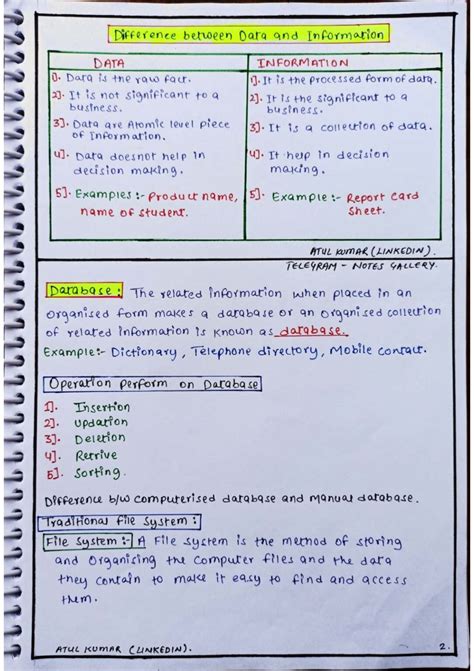 Difference between Data and Information
DATA
1]. Data is the raw fact.
2]. It is not significant to a
business.
3]. Data are Atomic level piece
of Information.
4]. Data doesnot help in
decision making.
5]. Examples :- Product name,
name of student.
INFORMATION
1]. It is the processed form of data.
2]. It is the significant to a
business.
3]. It is a collection of data.
4]. It help in decision
making.
5]. Example :- Report Card
Sheet.
ATUL KUMAR (LINKEDIN).
TELEGRAM - NOTES GALLERY.
Database : The related information when placed in an
organised form makes a database or an organised collection
of related information is known as database.
Example:- Dictionary, Telephone directory, Mobile contact.
Operation Perform on Database
1]. Insertion
2]. Updation
3]. Deletion
4]. Retrive
5]. Sorting.
Difference b/w computerised database and Manual database.
Traditional File System :
File System :- A File system is the method of storing
and organising the computer files and the data
they contain to make it easy to find and access
them.
ATUL KUMAR (LINKEDIN).
2.